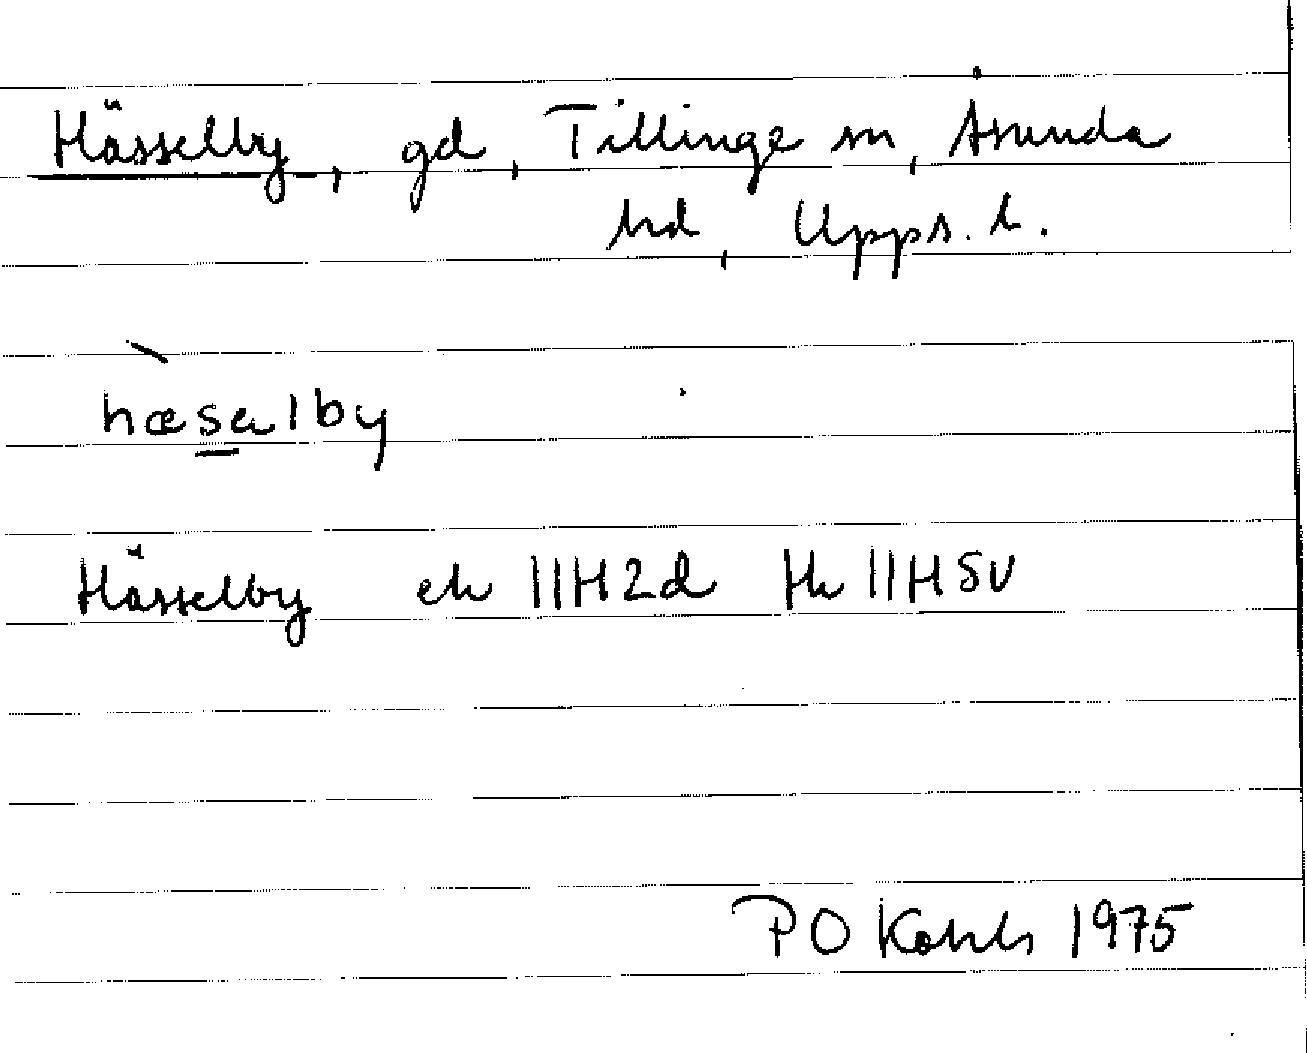 Hässelby, gd, Tillinge sn, Åsunda
hd, Upps. l.
hæsəlby
Hässelby ek 11H2d Hk 11HSV
P O 1975